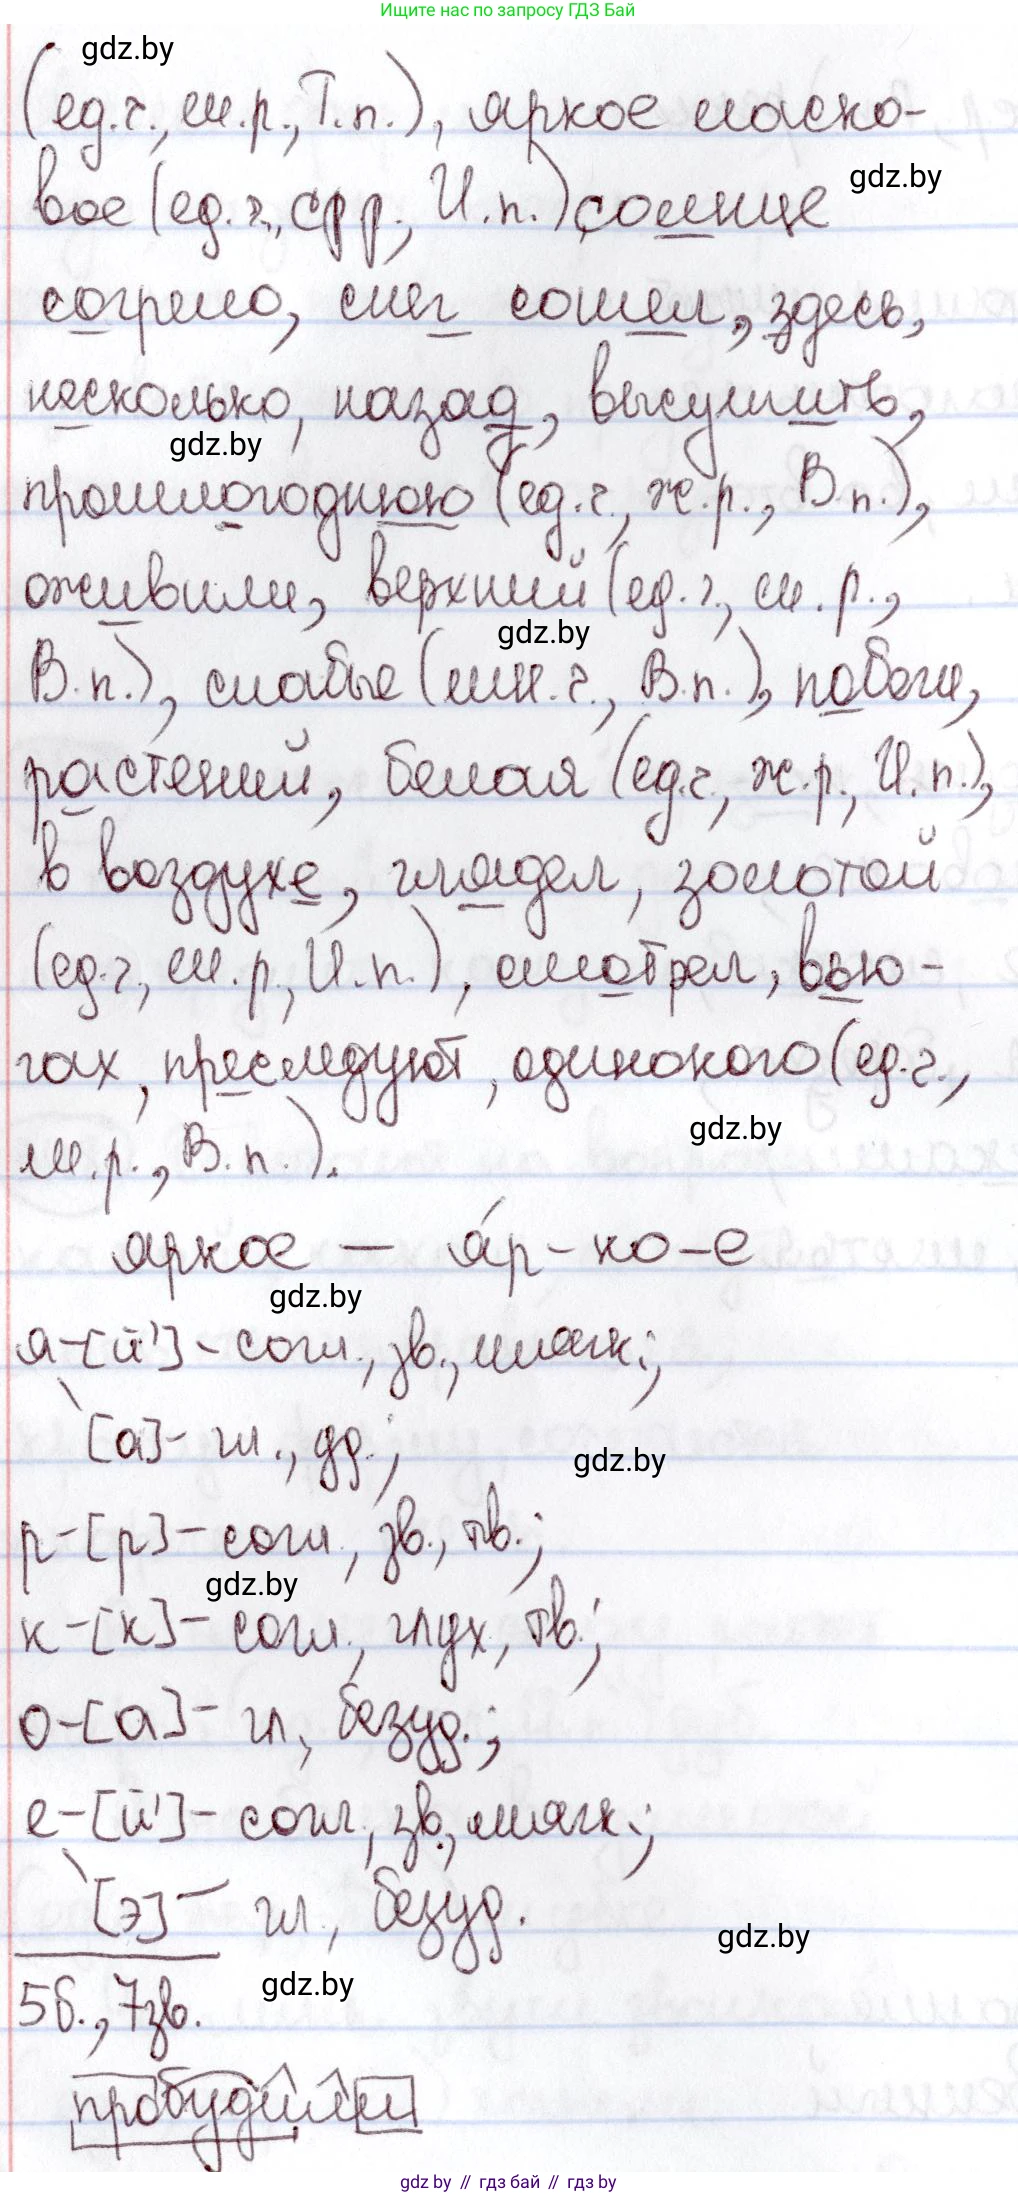 Ищите нас по запросу ГДЗ Бай
gdz.by
(ед.ч., м.р., Т.п.), яркое ласко-
gdz.by
вое (ед.ч., ср р., И.п.) солнце
согрело, снег сошел, здесь,
несколько, назад, высушить,
gdz.by
прошлогоднюю (ед.ч., ж.р., В.п.),
оживили, верхний (ед.ч., м.р.,
gdz.by
В.п.), слабые (мн.ч., В.п.), побеги,
растений, белая (ед.ч., ж.р., И.п.),
в воздухе, глядел, золотой
(ед.ч., м.р., И.п.), смотрел, вью-
гах, преследуют, одинокого (ед.ч.,
gdz.by
м.р., В.п.).
яркое — я́р-ко-е
gdz.by
я-[й']-согл., зв., мягк.;
[а]-гл., уд.;
gdz.by
р-[р]-согл., зв., тв.;
gdz.by
к-[к]-согл., глух, тв.;
о-[а]-гл., безуд.;
е-[й']-согл, зв., мягк.;
[э]-гл., безуд.
gdz.by
gdz.by
5б., 7зв.
пробудили
gdz.by // гдз бай // гдз by